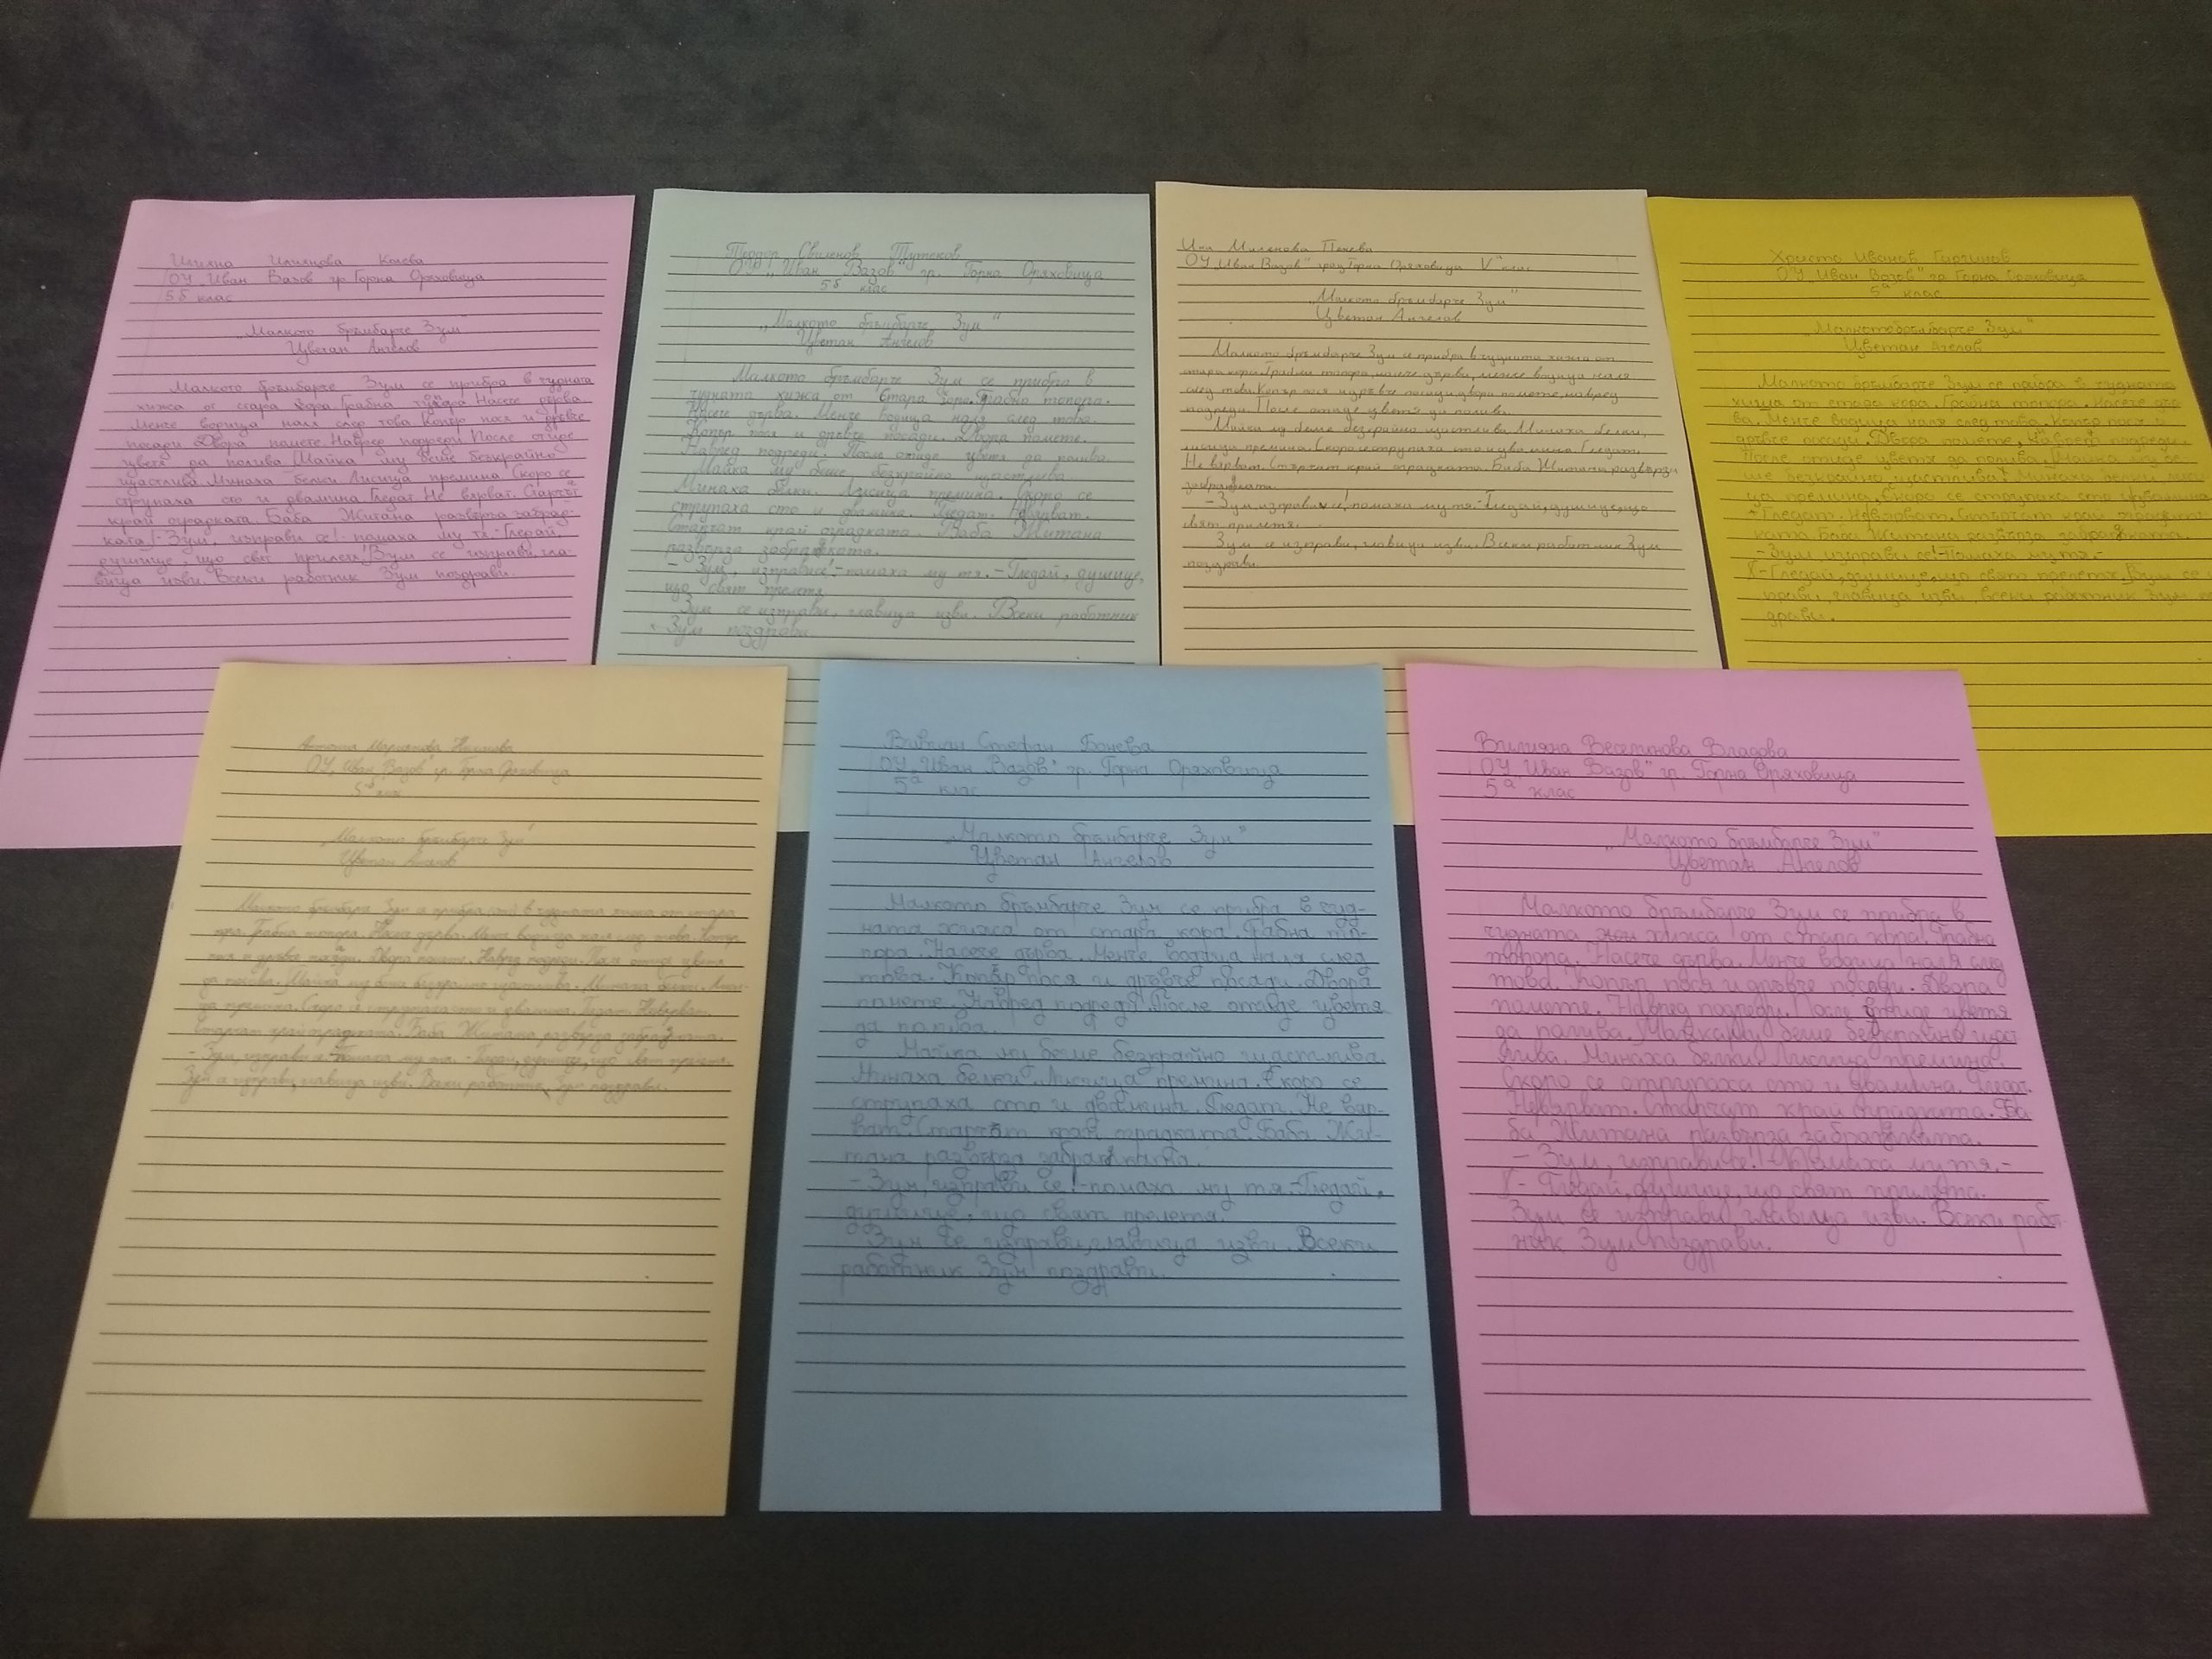 Илияна Илиянова Колева
ОУ „Иван Вазов гр Горна Оряховица
5б клас
„Малкото бръмбарче Зум"
Цветан Ангелов
Малкото бръмбарче Зум се прибра в чудната
хижа от стара кора Грабна топора Насече дърва.
Менче водица наля след това Копър пося и дръвче
посади Двора помете. Навред подреди После отиде
цветя да полива Майка му беше безкрайно
щастлива Минаха белки Лисица премина Скоро се
струпаха сто и двамина Гледат Не вярват. Стърчат
край оградката. Баба Житана развърза забрад-
ката!- Зум, изправи се!- помаха му тя.-Гледай,
душице, що свят прилетя! Зум се изправи, гла-
вица изви. Всеки работник Зум поздрави.
Теодор Свиленов Тутеков
ОУ „Иван Вазов" гр. Горна Оряховица
5б клас
„Малкото бръмбарче Зум"
Цветан Ангелов
Малкото бръмбарче Зум се прибра в
чудната хижа от стара кора. Грабна топора.
Насече дърва. Менче водица наля след това.
Копър пося и дръвче посади. Двора помете.
Навред подреди. После отиде цветя да полива.
Майка му беше безкрайно щастлива
Минаха белки. Лисица премина. Скоро се
струпаха сто и двамина. Гледат. Невярват.
Стърчат край оградката. Баба Житана
развърза забрадката.
- Зум, изправи се!-помаха му тя.-Гледай, душице,
що свят прелетя.
Зум се изправи, главица изви. Всеки работник
Зум поздрави.
Ина Миленова Пенева
ОУ „Иван Вазов" град Горна Оряховица V клас
„Малкото бръмбарче Зум"
Цветан Ангелов
Малкото бръмбарче Зум се прибра в чудната хижа от
стара кора. Грабна топора, насече дърва, менче водица наля
след това. Копър пося и дръвче посади, двора помете, навред
подреди. После отиде цветя да полива.
Майка му беше безкрайно щастлива. Минаха белки,
лисица премина. Скоро се струпаха сто и двамина. Гледат.
Не вярват. Стърчат край оградката. Баба Житана развърза
забрадката.
- Зум, изправи се!, помаха му тя.-Гледай, душице, що
свят прилетя.
Зум се изправи, главица изви. Всеки работник Зум
поздрави.
Христо Иванов
ОУ „Иван Вазов" гр Горна Оряховица
5а клас
„Малкото бръмбарче Зум"
Цветан Ангелов
Малкото бръмбарче Зум се прибра в чудната
хижа от стара кора. Грабна топора. Насече дър
ва. Менче водица наля след това. Копър пося и
дръвче посади. Двора помете. Навред подреди.
После отиде цветя да полива. Майка му бе
ше безкрайно щастлива. Минаха белки лиси
ца премина. Скоро се струпаха сто и двамина.
Гледат. Невярват. Стърчат край оградк
ката Баба Житана развърза забрадката.
- Зум, изправи се!-помаха му тя.-
-Гледай, душице, що свят прелетя. Зум се из
прави, главица изви, всеки работник Зум по
здрави.
Антония Марианова
ОУ „Иван Вазов" гр. Горна Оряховица
5а клас
„Малкото бръмбарче Зум"
Цветан Ангелов
Малкото бръмбарче Зум се прибра в чудната хижа от стара
кора. Грабна топора. Насече дърва. Менче водица наля след това. Копър
пося и дръвче посади. Двора помете. Навред подреди. После отиде цветя
да полива. Майка му беше безкрайно щастлива. Минаха белки. Лиси-
ца премина. Скоро се струпаха сто и двамина. Гледат. Невярват.
Стърчат край оградката. Баба Житана развърза забрадката.
- Зум, изправи се.-Помаха му тя. -Гледай, душице, що свят прелетя.
Зум се изправи, главица изви. Всеки работник Зум поздрави.
Вивиан Стефан Бонева
ОУ „Иван Вазов" гр. Горна Оряховица
5а клас
„Малкото бръмбарче Зум"
Цветан Ангелов
Малкото бръмбарче Зум се прибра в чуд-
ната хижа от стара кора. Грабна то-
пора. Насече дърва. Менче водица наля след
това. Копър пося и дръвче посади. Двора
помете. Навред подреди. После отиде цветя
да полива.
Майка му беше безкрайно щастлива.
Минаха белки. Лисица премина. Скоро се
струпаха сто и двамина. Гледат. Не вяр-
ват. Стърчат край оградката. Баба Жи-
тана развърза забрадката.
-Зум, изправи се!-помаха му тя.-Гледай,
душице, що свят прелетя.
Зум се изправи, главица изви. Всеки
работник Зум поздрави.
Вилияна Веселинова Владова
ОУ „Иван Вазов" гр. Горна Оряховица
5а клас
„Малкото бръмбарче Зум"
Цветан Ангелов
Малкото бръмбарче Зум се прибра в
чудната хижа от стара кора. Грабна
топора. Насече дърва. Менче водица наля след
това. Копър пося и дръвче посади. Двора
помете. Навред подреди. После отиде цветя
да полива. Майка му беше безкрайно щаст
лива. Минаха белки. Лисица премина.
Скоро се струпаха сто и двамина. Гледат.
Невярват. Стърчат край оградката. Ба
ба Житана развърза забрадката.
- Зум, изправи се! -Помаха му тя.-
- Гледай, душице, що свят прилетя.
Зум се изправи, главица изви. Всеки работ
ник Зум поздрави.